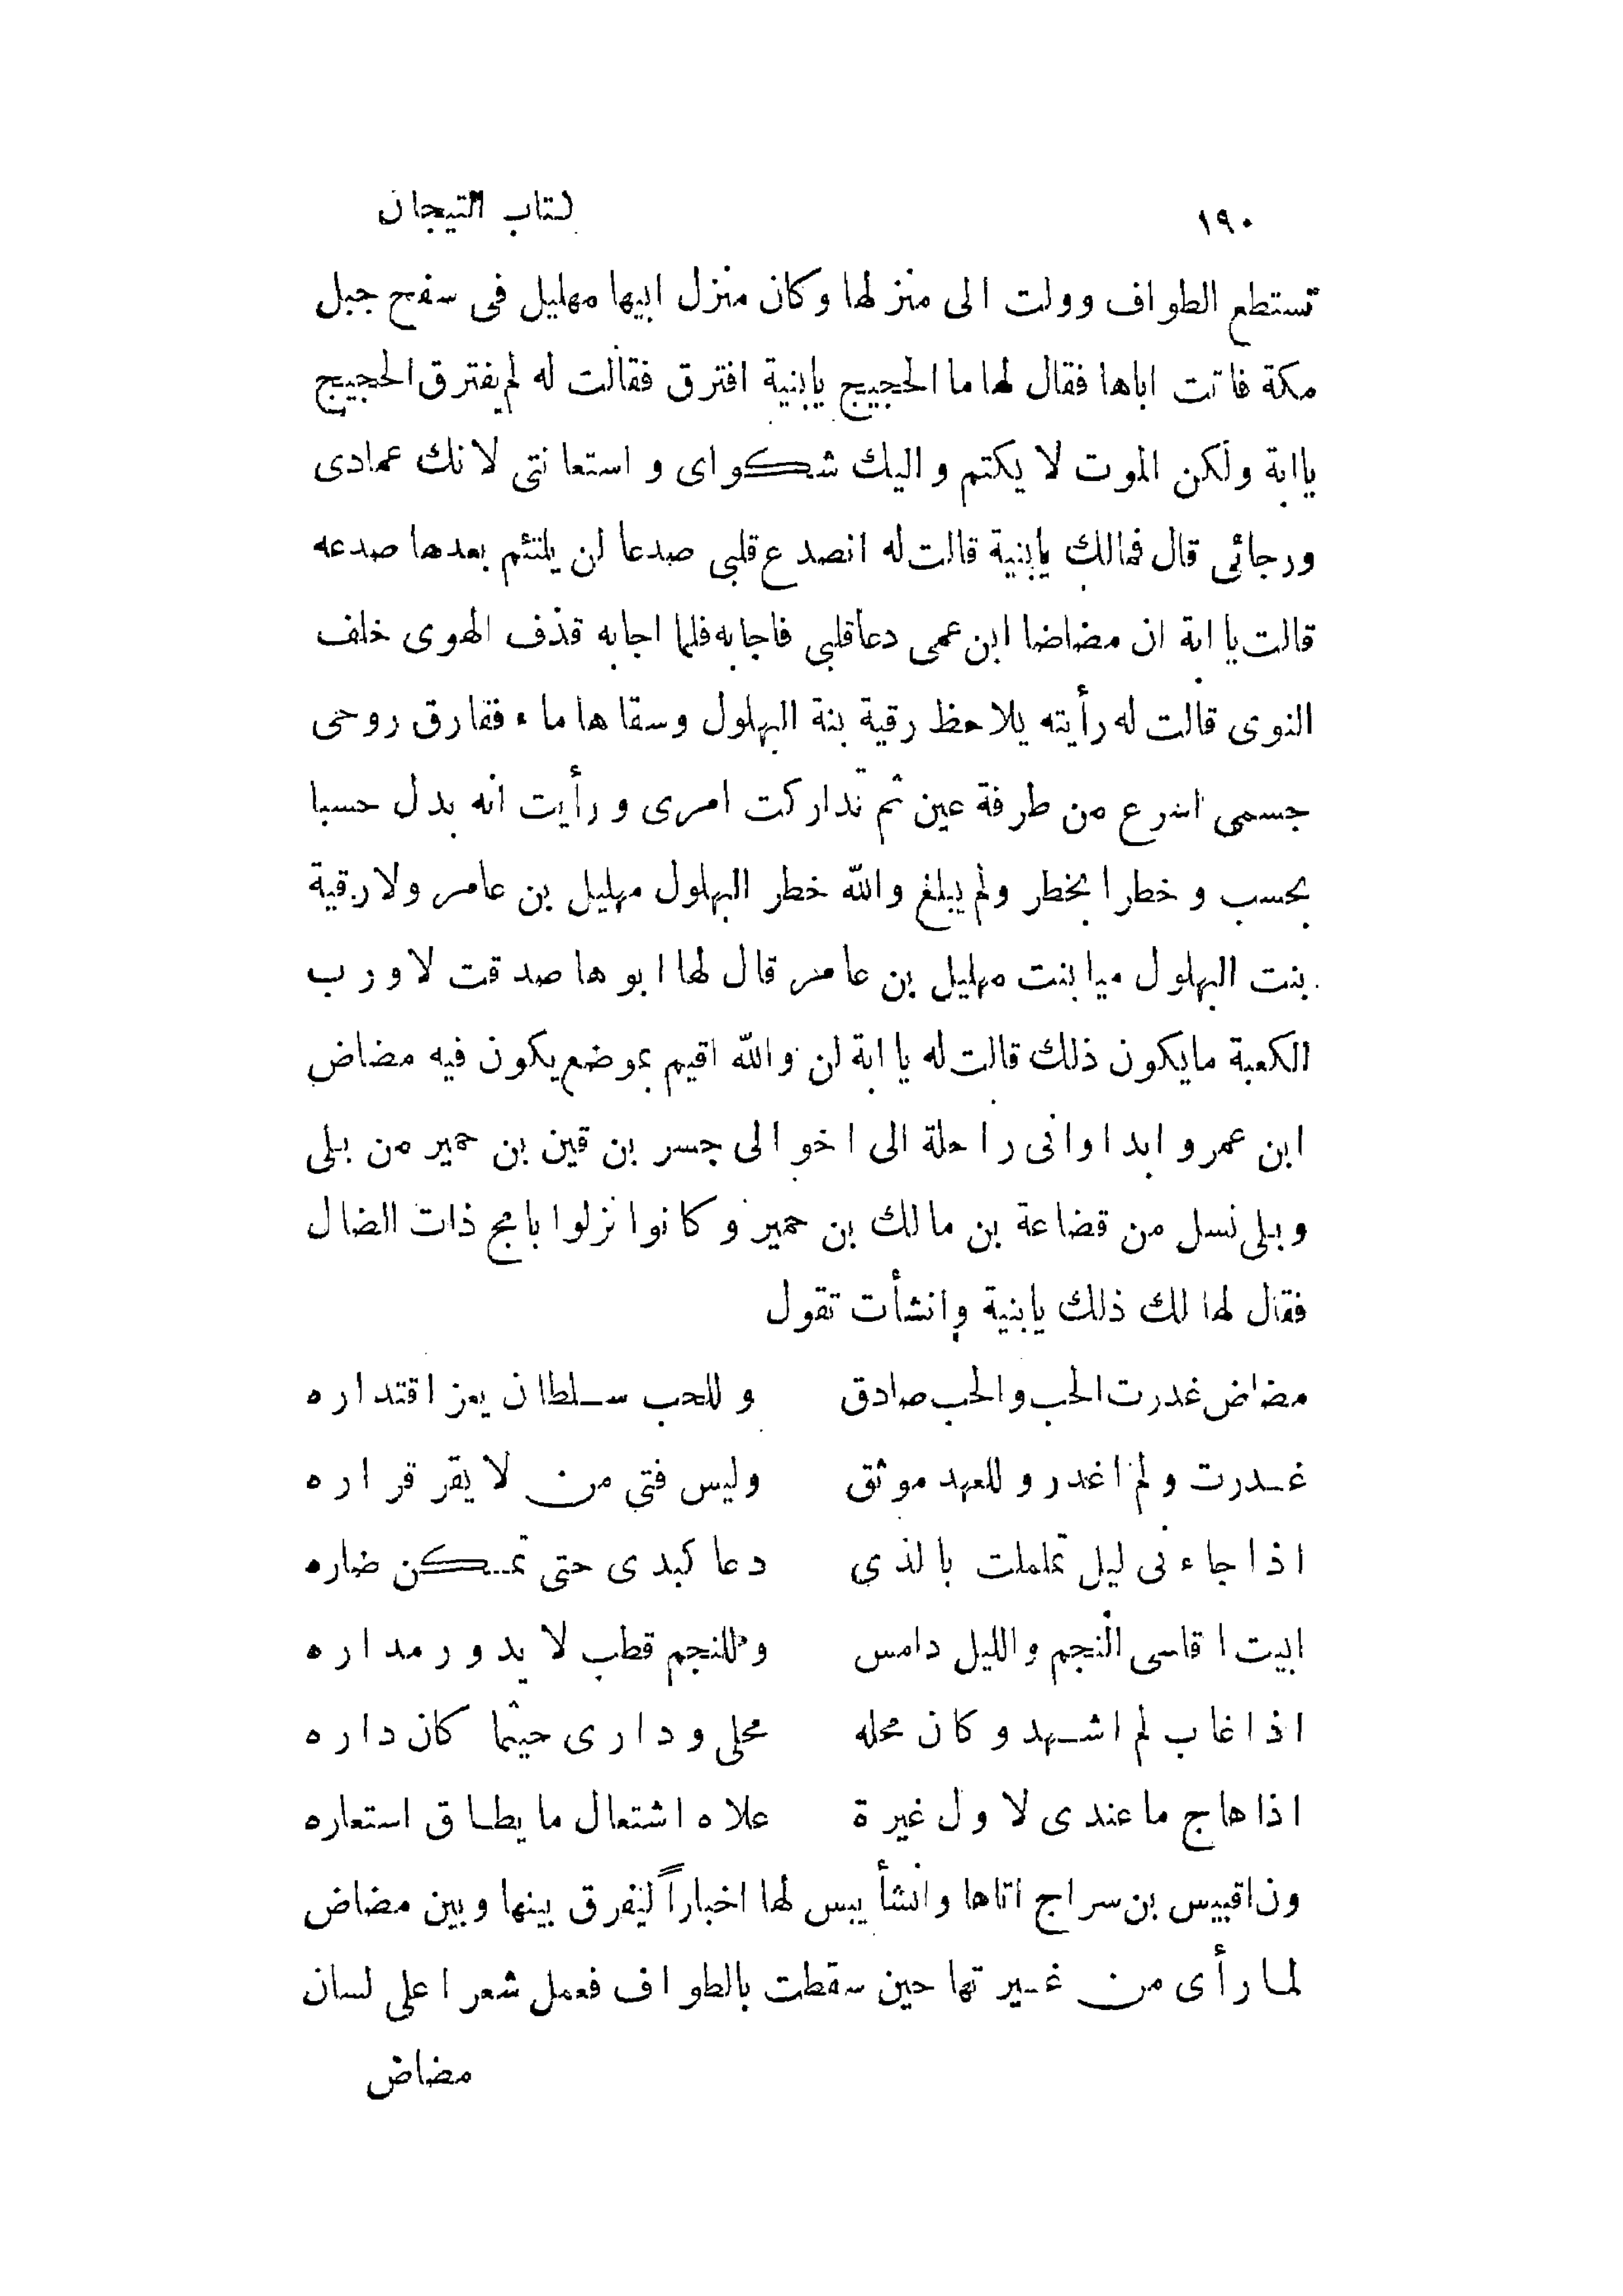 ١٩٠ كتاب التيجان
تستطع الطواف وولت الى منزلها وكان منزل ابيها مهليل فى سفح جبل
مكة فاتت اباها فقال لها ما الحجيج يابنية افترق فقالت له لم يفترق الحجيج
ياابة ولكن الموت لا يكتم واليك شكواى و استعانتى لانك عمادى
ورجائى قال فمالك يابنية قالت له انصدع قلبى صدعا لن يلتئم بعدها صدعه
قالت يا ابة ان مضاضا ابن عمى دعا قلبى فاجابه فلما اجابه قذف الهوى خلف
النوى قالت له رأيته يلاحظ رقية بنة البهلول وسقاها ماء ففارق روحى
جسمى اسرع من طرفة عين ثم تداركت امرى ورأيت انه بدل حسبا
بحسب و خطرا بخطر ولم يبلغ والله خطر البهلول مهليل بن عامر ولا رقية
بنت البهلول ميا بنت مهليل بن عامر قال لها ابوها صدقت لا ورب
الكعبة مايكون ذلك قالت له يا ابة لن والله اقيم بموضع يكون فيه مضاض
ابن عمرو ابدا وانى راحلة الى اخوالى جسر بن قين بن حمير من بلى
وبلى نسل من قضاعة بن مالك بن حمير وكانوا نزلوا بامج ذات الضال
فقال لها لك ذلك يابنية وانشأت تقول
مضاض غدرت الحب والحب صادق وللحب سلطان يعز اقتداره
غدرت ولم اغدر وللعهد موثق وليس فتى من لا يقر قراره
اذا جاءنى ليل تململت بالذى دعا كبدى حتى تمكن ضاره
ابيت اقاسى النجم والليل دامس وللنجم قطب لا يدور مداره
اذا غاب لم اشهد وكان محله محلى ودارى حيثما كان داره
اذا هاج ما عندى لاول غيرة علاه اشتعال ما يطاق استعاره
وناقبيس بن سراج اتاها وانشأ يبس لها اخباراً ليفرق بينها وبين مضاض
لما رأى من غيرتها حين سقطت بالطواف فعمل شعرا على لسان
مضاض